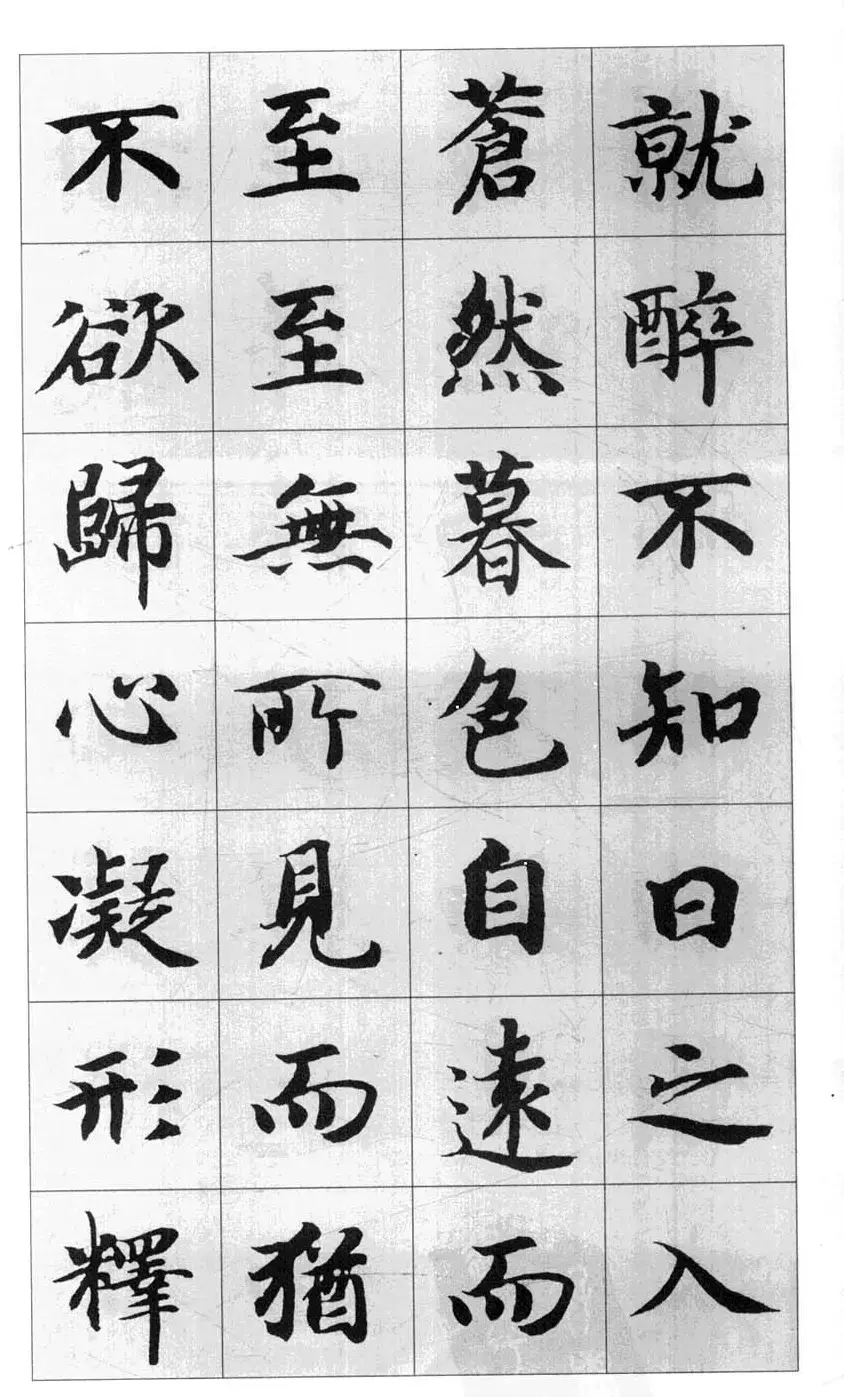 就醉不知日之入
蒼然暮色自遠而
至至無所見而猶
不欲歸心凝形釋